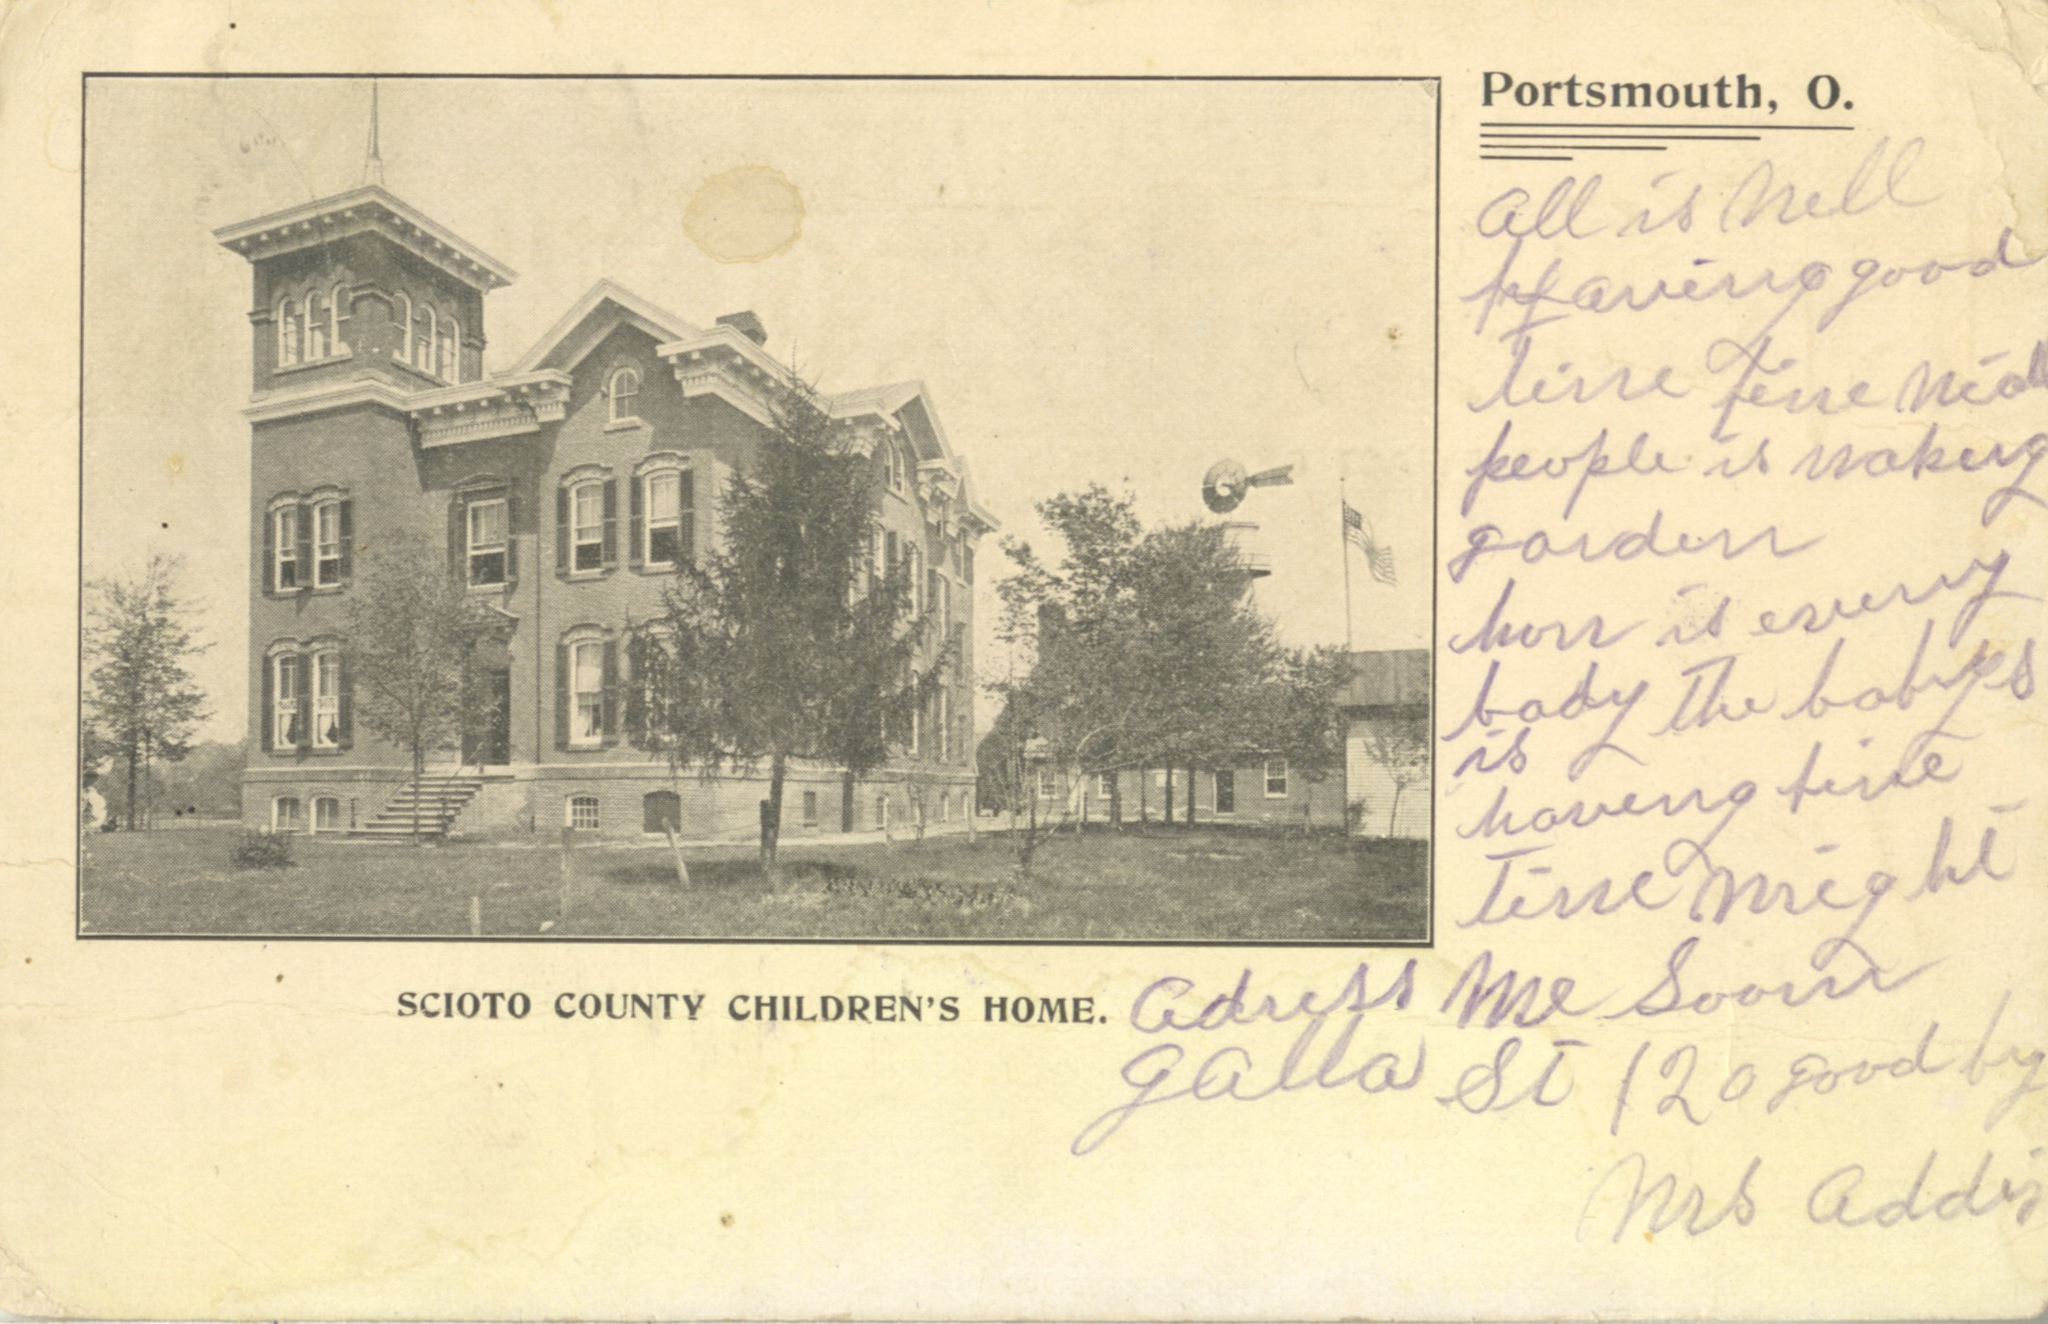 Portsmouth, O.
all is Well
Having good
time fine
people is making
garden
how is every
body the babyes
is
having fine
time Wright
SCIOTO COUNTY CHILDREN'S HOME.
Adress Me Soon
Galla St 120 good by
Mrs Addis